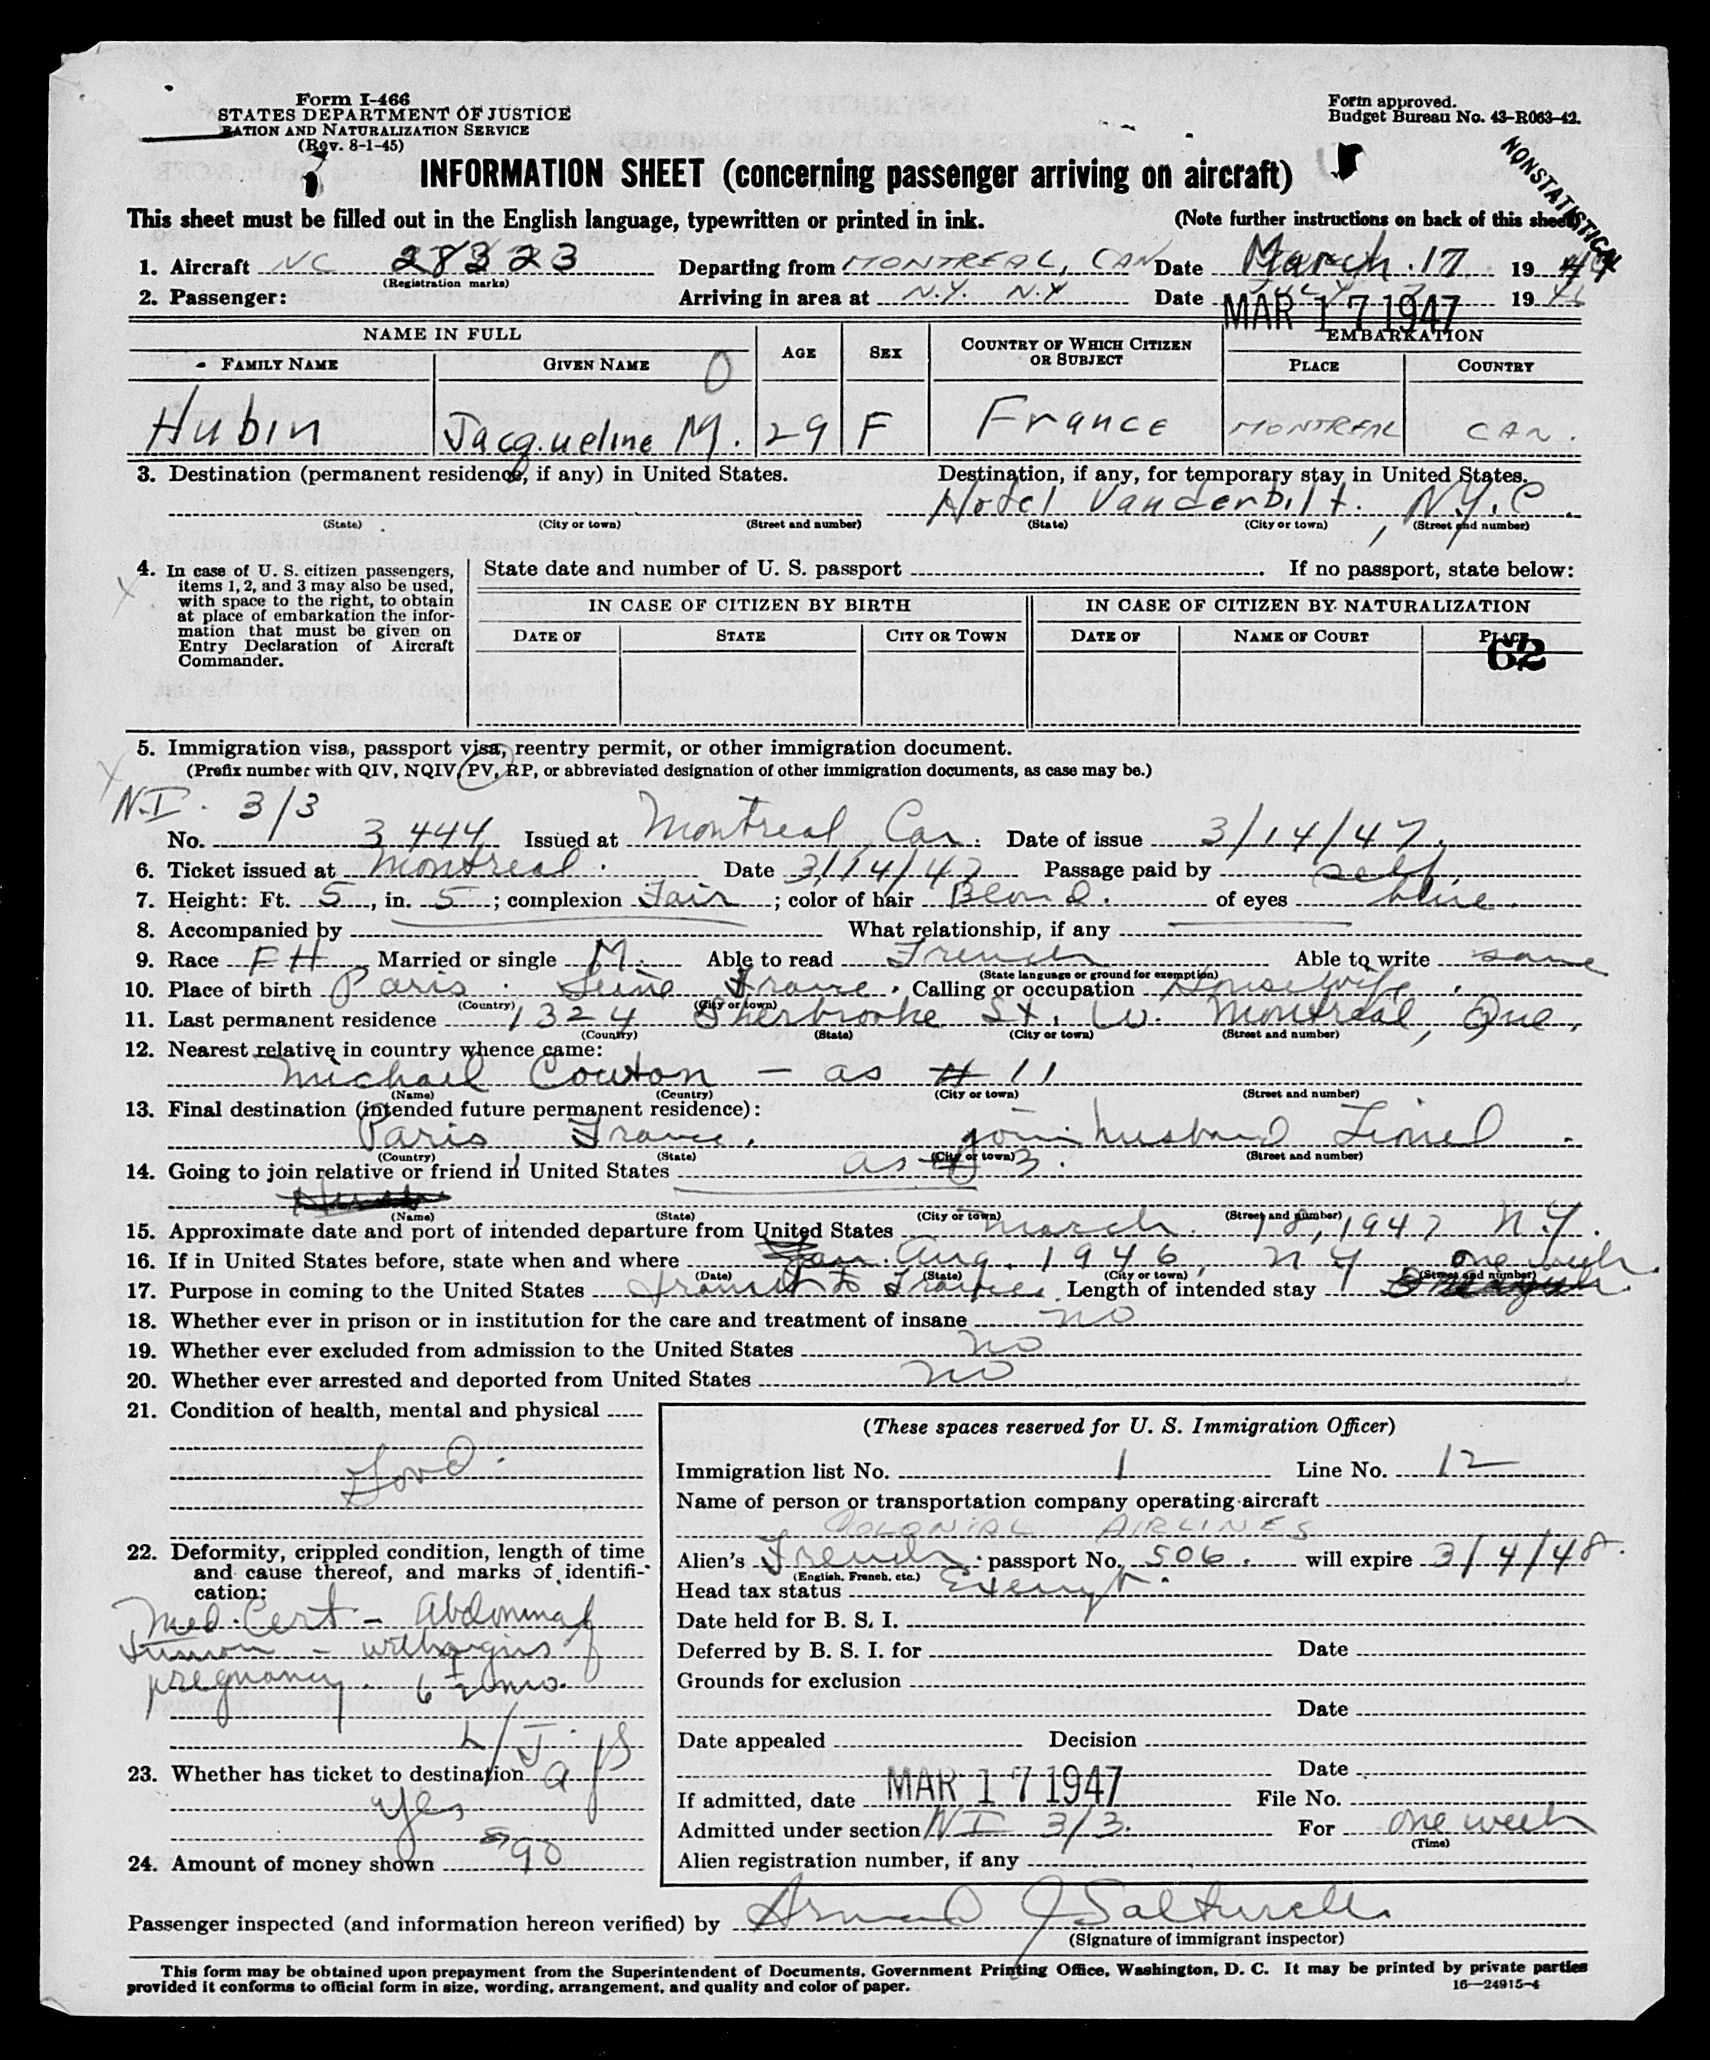 Form I-466
STATES DEPARTMENT OF JUSTICE
RATION AND NATURALIZATION SERVICE
(Rev. 8-1-45)
Form approved.
Budget Bureau No. 43-R063-42.
INFORMATION SHEET (concerning passenger arriving on aircraft)
NONSTATISTICAL
This sheet must be filled out in the English language, typewritten or printed in ink. (Note further instructions on back of this sheet)
1. Aircraft NC 28323 Departing from MONTREAL, CAN Date March 17 1947
(Registration marks)
2. Passenger: Arriving in area at N.Y. N.Y Date JULY 3 1946
MAR 17 1947
NAME IN FULL AGE SEX COUNTRY OF WHICH CITIZEN OR SUBJECT EMBARKATION
FAMILY NAME GIVEN NAME PLACE COUNTRY
Hubin Jacqueline M. 29 F France MONTREAL CAN.
3. Destination (permanent residence, if any) in United States. Destination, if any, for temporary stay in United States.
Hotel Vanderbilt, N.Y.C.
(State) (City or town) (Street and number) (State) (City or town) (Street and number)
4. In case of U. S. citizen passengers, items 1, 2, and 3 may also be used, with space to the right, to obtain at place of embarkation the information that must be given on Entry Declaration of Aircraft Commander.
State date and number of U. S. passport If no passport, state below:
IN CASE OF CITIZEN BY BIRTH IN CASE OF CITIZEN BY NATURALIZATION
DATE OF STATE CITY OR TOWN DATE OF NAME OF COURT PLACE
62
5. Immigration visa, passport visa, reentry permit, or other immigration document.
(Prefix number with QIV, NQIV, PV, RP, or abbreviated designation of other immigration documents, as case may be.)
N.I. 3/3
No. 3444 Issued at Montreal, Can. Date of issue 3/14/47.
6. Ticket issued at Montreal. Date 3/14/47 Passage paid by self.
7. Height: Ft. 5, in. 5; complexion Fair; color of hair Blond. of eyes blue.
8. Accompanied by What relationship, if any
9. Race F H Married or single M. Able to read French Able to write same
(State language or ground for exemption)
10. Place of birth Paris. Seine France. Calling or occupation Housewife.
(Country) (City or town)
11. Last permanent residence 1324 Sherbrooke St. W. Montreal, Que,
(Country) (State) (City or town) (Street and number)
12. Nearest relative in country whence came:
Michael Couton - as # 11
(Name) (Country) (City or town) (Street and number)
13. Final destination (intended future permanent residence):
Paris France. join husband Lionel.
(Country) (State) (City or town) (Street and number)
14. Going to join relative or friend in United States as # 3.
(Name) (State) (City or town) (Street and number)
15. Approximate date and port of intended departure from United States March 18, 1947 N.Y.
16. If in United States before, state when and where Aug. 1946, N Y one week.
(Date) (State) (City or town) (Street and number)
17. Purpose in coming to the United States transit to France. Length of intended stay
18. Whether ever in prison or in institution for the care and treatment of insane no
19. Whether ever excluded from admission to the United States no
20. Whether ever arrested and deported from United States no
21. Condition of health, mental and physical
Good.
22. Deformity, crippled condition, length of time and cause thereof, and marks of identification:
Med. Cert - Abdominal
tumor -
pregnancy. 6 1/2 mo.
23. Whether has ticket to destination
yes
24. Amount of money shown $90
(These spaces reserved for U. S. Immigration Officer)
Immigration list No. 1 Line No. 12
Name of person or transportation company operating aircraft
COLONIAL AIRLINES
Alien's French passport No. 506. will expire 3/4/48.
(English, French, etc.)
Head tax status Exempt.
Date held for B. S. I.
Deferred by B. S. I. for Date
Grounds for exclusion
Date
Date appealed Decision
Date
If admitted, date MAR 17 1947 File No.
Admitted under section NI 3/3. For one week
(Time)
Alien registration number, if any
Passenger inspected (and information hereon verified) by
(Signature of immigrant inspector)
This form may be obtained upon prepayment from the Superintendent of Documents, Government Printing Office, Washington, D. C. It may be printed by private parties
provided it conforms to official form in size, wording, arrangement, and quality and color of paper. 16—24915-4